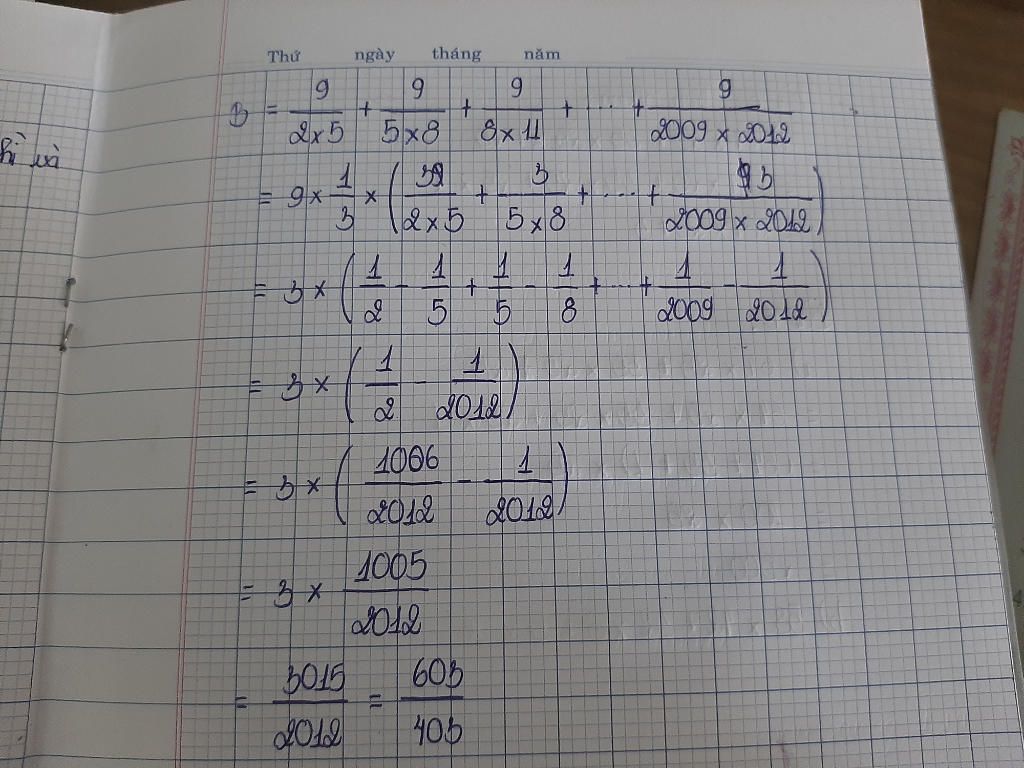 hì và
Thứ ngày tháng năm
B = 9/(2×5) + 9/(5×8) + 9/(8×11) + ... + 9/(2009×2012)
= 9 × 1/3 × (3/(2×5) + 3/(5×8) + ... + 3/(2009×2012))
= 3 × (1/2 - 1/5 + 1/5 - 1/8 + ... + 1/2009 - 1/2012)
= 3 × (1/2 - 1/2012)
= 3 × (1006/2012 - 1/2012)
= 3 × 1005/2012
= 3015/2012 = 603/403